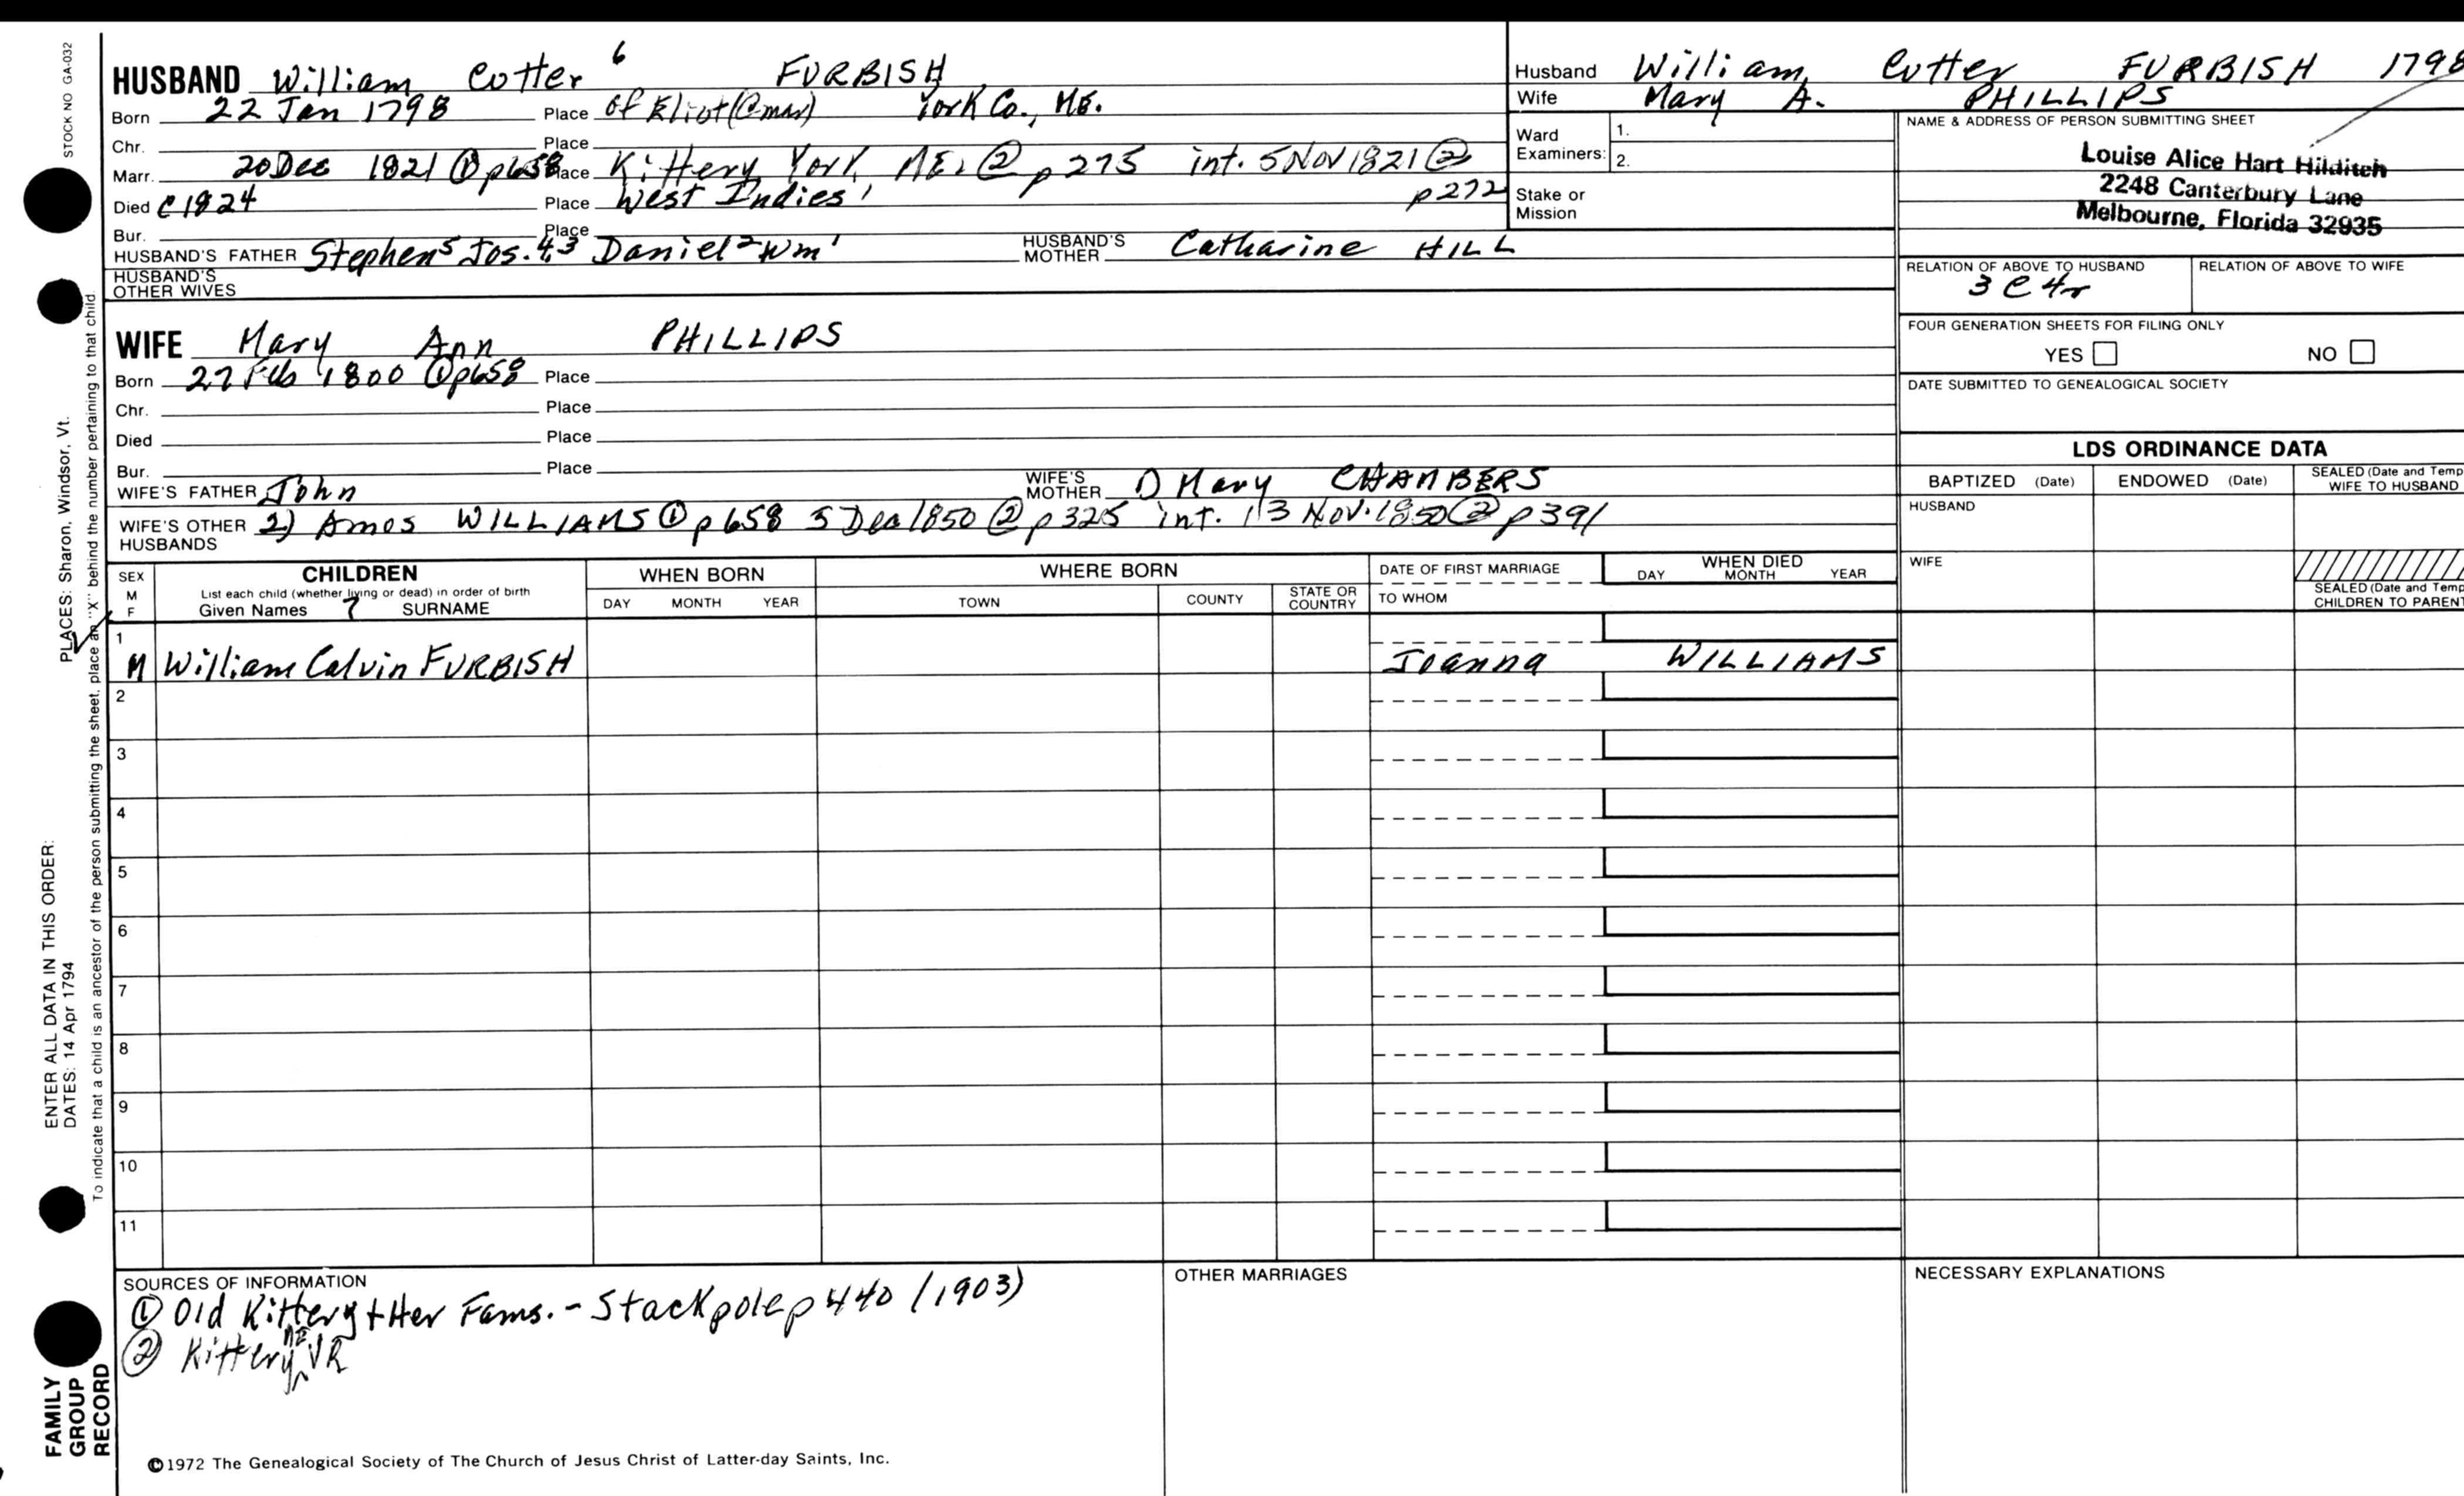 STOCK NO GA-032
PLACES: Sharon, Windsor, Vt.
ENTER ALL DATA IN THIS ORDER:
DATES: 14 Apr 1794
To indicate that a child is an ancestor of the person submitting the sheet, place an "X" behind the number pertaining to that child.
FAMILY GROUP RECORD
HUSBAND William Cotter 6 FURBISH
Born 22 Jan 1798 Place of Eliot York Co., ME.
Chr. Place
Marr. 20 Dec 1821 ① p658 Place Kittery, York, ME. ② p 275 int. 5 Nov 1821 ②
p 272
Died c 1824 Place West Indies
Bur. Place
HUSBAND'S FATHER Stephen5 Jos.4,3 Daniel2 Wm1 HUSBAND'S MOTHER Catharine HILL
HUSBAND'S OTHER WIVES
WIFE Mary Ann PHILLIPS
Born 27 Feb 1800 ① p658 Place
Chr. Place
Died Place
Bur. Place
WIFE'S FATHER John WIFE'S MOTHER Mary CHAMBERS
WIFE'S OTHER HUSBANDS 2) Amos WILLIAMS ① p 658 5 Dec 1850 ② p 325 int. 13 Nov. 1850 ② p 391
Husband William Cutter FURBISH 1798
Wife Mary A. PHILLIPS
Ward Examiners: 1.
2.
Stake or Mission
NAME & ADDRESS OF PERSON SUBMITTING SHEET
Louise Alice Hart Hilditch
2248 Canterbury Lane
Melbourne, Florida 32935
RELATION OF ABOVE TO HUSBAND RELATION OF ABOVE TO WIFE
3 C 4r
FOUR GENERATION SHEETS FOR FILING ONLY
YES NO
DATE SUBMITTED TO GENEALOGICAL SOCIETY
LDS ORDINANCE DATA
BAPTIZED (Date) ENDOWED (Date) SEALED (Date and Temp
WIFE TO HUSBAND
HUSBAND
WIFE
SEALED (Date and Temp
CHILDREN TO PARENT
SEX M F CHILDREN WHEN BORN WHERE BORN DATE OF FIRST MARRIAGE WHEN DIED
List each child (whether living or dead) in order of birth
Given Names 7 SURNAME DAY MONTH YEAR TOWN COUNTY STATE OR COUNTRY TO WHOM DAY MONTH YEAR
1
M William Calvin FURBISH Joanna WILLIAMS
2
3
4
5
6
7
8
9
10
11
SOURCES OF INFORMATION OTHER MARRIAGES NECESSARY EXPLANATIONS
① Old Kittery + Her Fams. - Stackpole p 440 (1903)
② Kittery ME VR
©1972 The Genealogical Society of The Church of Jesus Christ of Latter-day Saints, Inc.